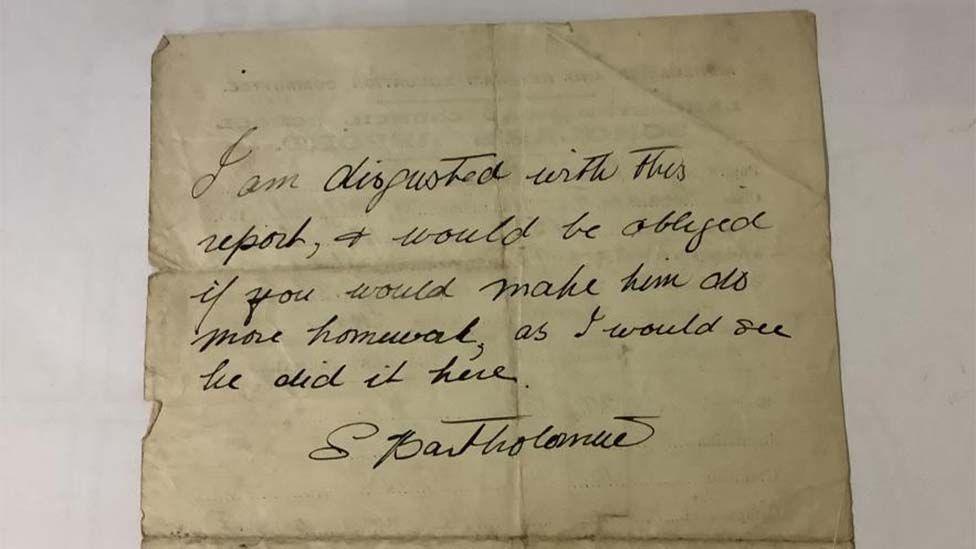 I am disgusted with this
report, & would be obliged
if you would make him do
more homework, as I would see
he did it here.
S Bartholomew